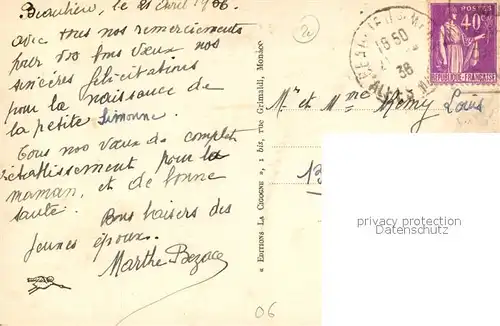 Beaulieu, le 21 Avril 1936.
avec tous nos remerciements
pour vos bons vœux nos
sincères félicitations
pour la naissance de
la petite Simonne.
Tous nos vœux de complet
rétablissement pour la
maman, et de bonne
santé.
Bons baisers des
jeunes époux.
Marthe Bezac
« EDITIONS LA CIGOGNE », 1 bis, rue Grimaldi, Monaco
POSTES
40c
REPUBLIQUE FRANÇAISE
16 50
36
Mr et Mme Rémy Louis
privacy protection
Datenschutz
06